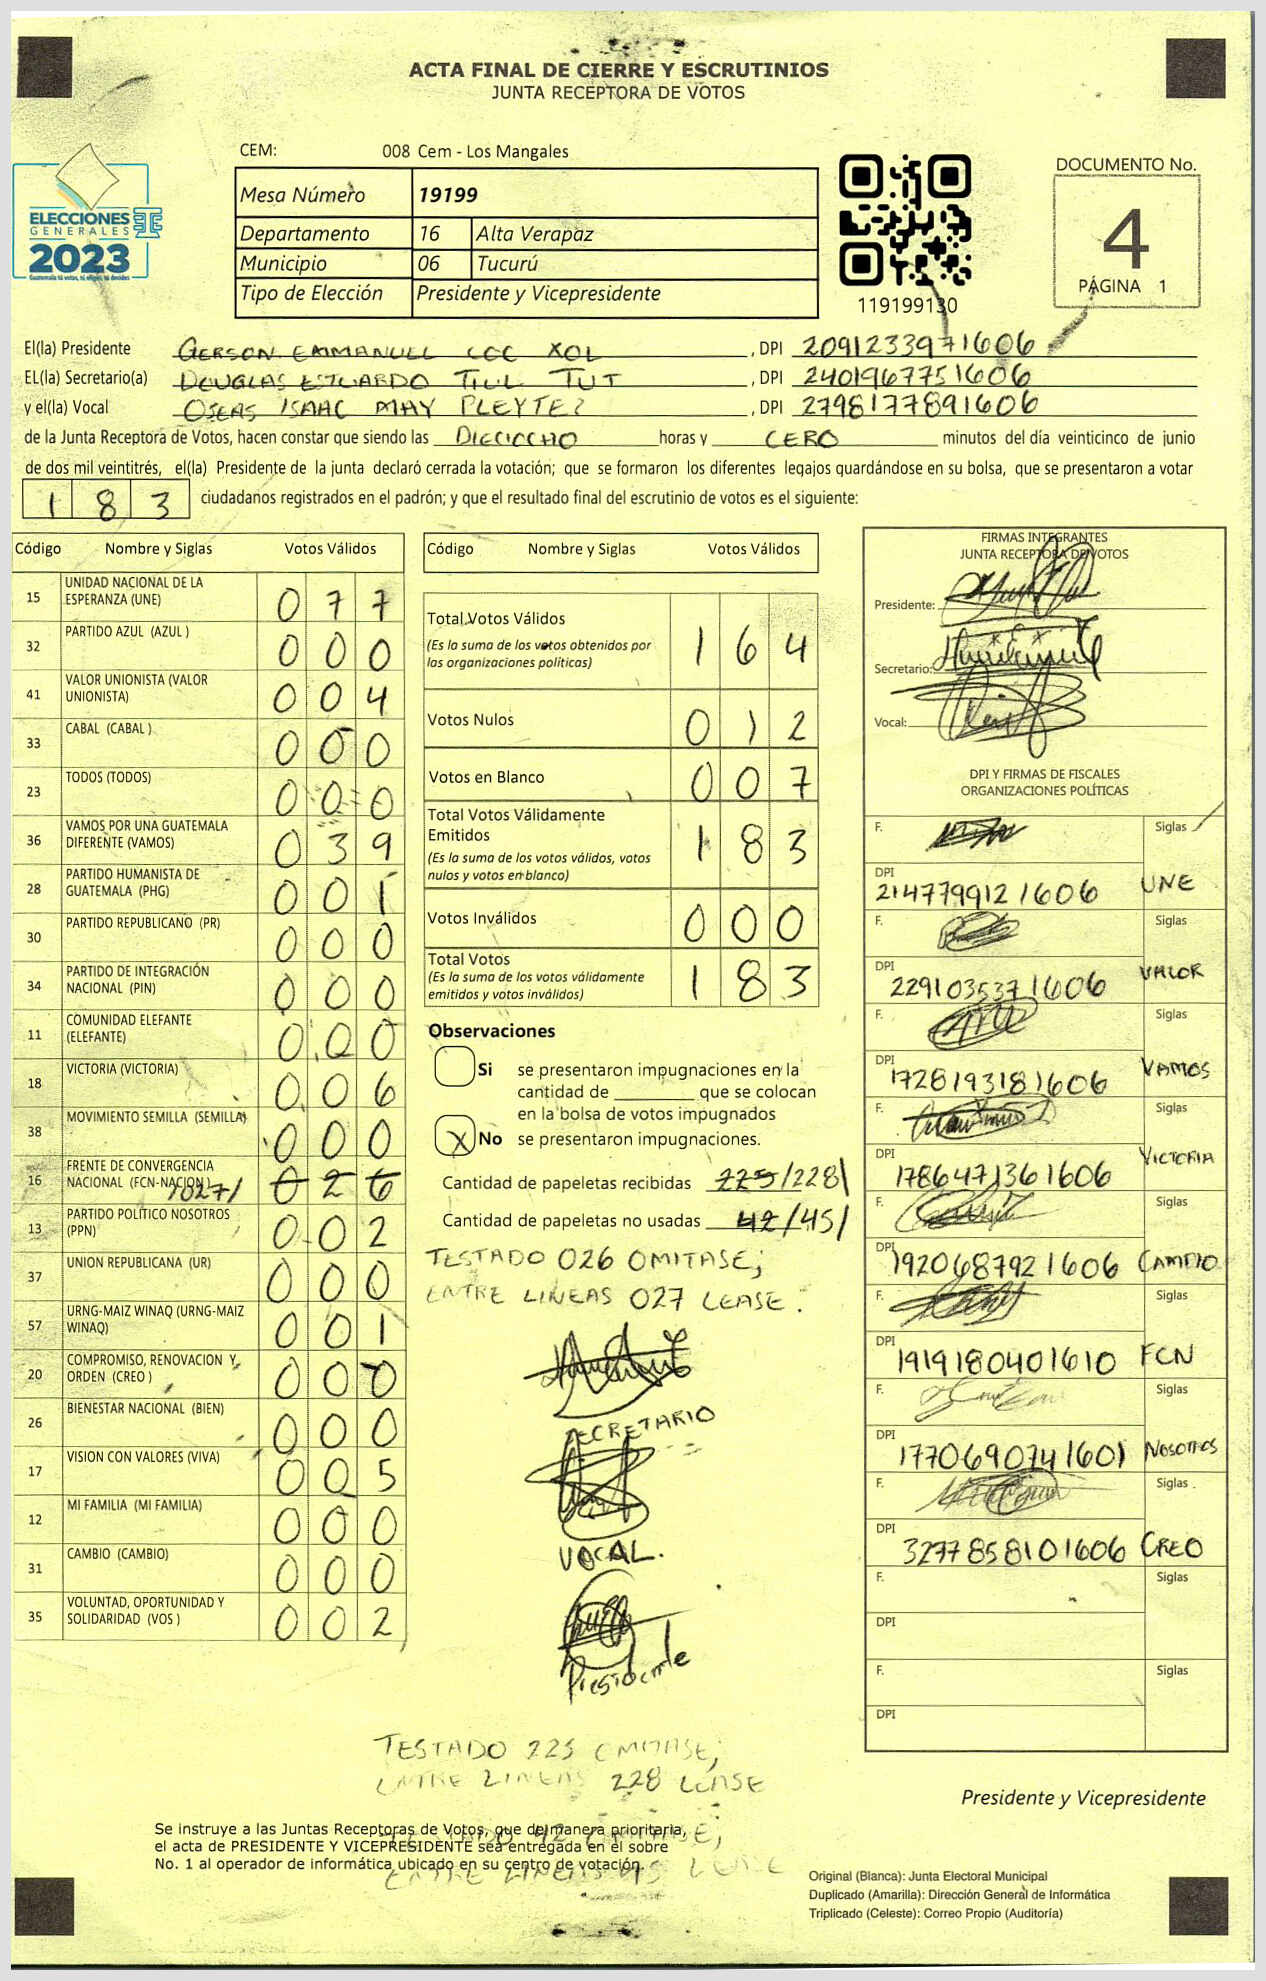 ACTA FINAL DE CIERRE Y ESCRUTINIOS
JUNTA RECEPTORA DE VOTOS
ELECCIONES
GENERALES
2023
CEM: 008 Cem - Los Mangales
Mesa Número 19199
Departamento 16 Alta Verapaz
Municipio 06 Tucurú
Tipo de Elección Presidente y Vicepresidente
119199130
DOCUMENTO No.
4
PÁGINA 1
El(la) Presidente GERSON EMMANUEL COC XOL, DPI 2091233971606
EL(la) Secretario(a) DOUGLAS ESTUARDO TIUL TUT, DPI 2401967751606
y el(la) Vocal OSEAS ISAAC MAY PLEYTEZ, DPI 2798177891606
de la Junta Receptora de Votos, hacen constar que siendo las DIECIOCHO horas y CERO minutos del día veinticinco de junio
de dos mil veintitrés, el(la) Presidente de la junta declaró cerrada la votación; que se formaron los diferentes legajos guardándose en su bolsa, que se presentaron a votar
183 ciudadanos registrados en el padrón; y que el resultado final del escrutinio de votos es el siguiente:
Código Nombre y Siglas Votos Válidos
15 UNIDAD NACIONAL DE LA ESPERANZA (UNE) 077
32 PARTIDO AZUL (AZUL ) 000
41 VALOR UNIONISTA (VALOR UNIONISTA) 004
33 CABAL (CABAL ) 000
23 TODOS (TODOS) 000
36 VAMOS POR UNA GUATEMALA DIFERENTE (VAMOS) 039
28 PARTIDO HUMANISTA DE GUATEMALA (PHG) 001
30 PARTIDO REPUBLICANO (PR) 000
34 PARTIDO DE INTEGRACIÓN NACIONAL (PIN) 000
11 COMUNIDAD ELEFANTE (ELEFANTE) 000
18 VICTORIA (VICTORIA) 006
38 MOVIMIENTO SEMILLA (SEMILLA) 000
16 FRENTE DE CONVERGENCIA NACIONAL (FCN-NACION) /027/ 026
13 PARTIDO POLITICO NOSOTROS (PPN) 002
37 UNION REPUBLICANA (UR) 000
57 URNG-MAIZ WINAQ (URNG-MAIZ WINAQ) 001
20 COMPROMISO, RENOVACION Y ORDEN (CREO ) 000
26 BIENESTAR NACIONAL (BIEN) 000
17 VISION CON VALORES (VIVA) 005
12 MI FAMILIA (MI FAMILIA) 000
31 CAMBIO (CAMBIO) 000
35 VOLUNTAD, OPORTUNIDAD Y SOLIDARIDAD (VOS ) 002
Código Nombre y Siglas Votos Válidos
Total Votos Válidos 164
(Es la suma de los votos obtenidos por
las organizaciones políticas)
Votos Nulos 012
Votos en Blanco 007
Total Votos Válidamente
Emitidos 183
(Es la suma de los votos válidos, votos
nulos y votos en blanco)
Votos Inválidos 000
Total Votos 183
(Es la suma de los votos válidamente
emitidos y votos inválidos)
Observaciones
Si se presentaron impugnaciones en la
cantidad de ________ que se colocan
en la bolsa de votos impugnados
X No se presentaron impugnaciones.
Cantidad de papeletas recibidas 225/228/
Cantidad de papeletas no usadas 42/45/
TESTADO 026 OMITASE;
ENTRE LINEAS 027 LEASE.
SECRETARIO
VOCAL.
Presidente
TESTADO 225 OMITASE;
ENTRE LINEAS 228 LEASE
TESTADO 42 OMITASE,
ENTRE LINEAS 45 LEASE
FIRMAS INTEGRANTES
JUNTA RECEPTORA DE VOTOS
Presidente:
Secretario:
Vocal:
DPI Y FIRMAS DE FISCALES
ORGANIZACIONES POLÍTICAS
F. Siglas
DPI 2147799121606 UNE
F. Siglas
DPI 2291035371606 VALOR
F. Siglas
DPI 1728193181606 VAMOS
F. Siglas
DPI 1786471361606 VICTORIA
F. Siglas
DPI 1920687921606 CAMBIO
F. Siglas
DPI 1919180401610 FCN
F. Siglas
DPI 1770690741601 NOSOTROS
F. Siglas
DPI 3277858101606 CREO
F. Siglas
DPI
F. Siglas
DPI
Presidente y Vicepresidente
Se instruye a las Juntas Receptoras de Votos, que de manera prioritaria,
el acta de PRESIDENTE Y VICEPRESIDENTE sea entregada en el sobre
No. 1 al operador de informática ubicado en su centro de votación.
Original (Blanca): Junta Electoral Municipal
Duplicado (Amarilla): Dirección General de Informática
Triplicado (Celeste): Correo Propio (Auditoría)